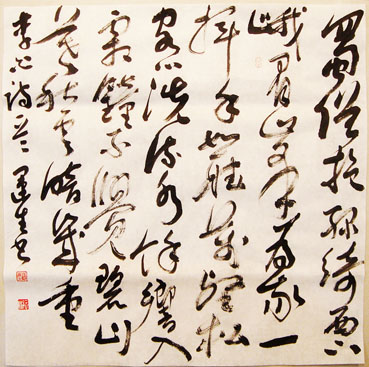 蜀僧抱绿绮西下
峨眉峰为我一
挥手如听万壑松
客心洗流水餘響入
霜鐘不覺碧山
暮秋雲暗幾重
李白詩一首